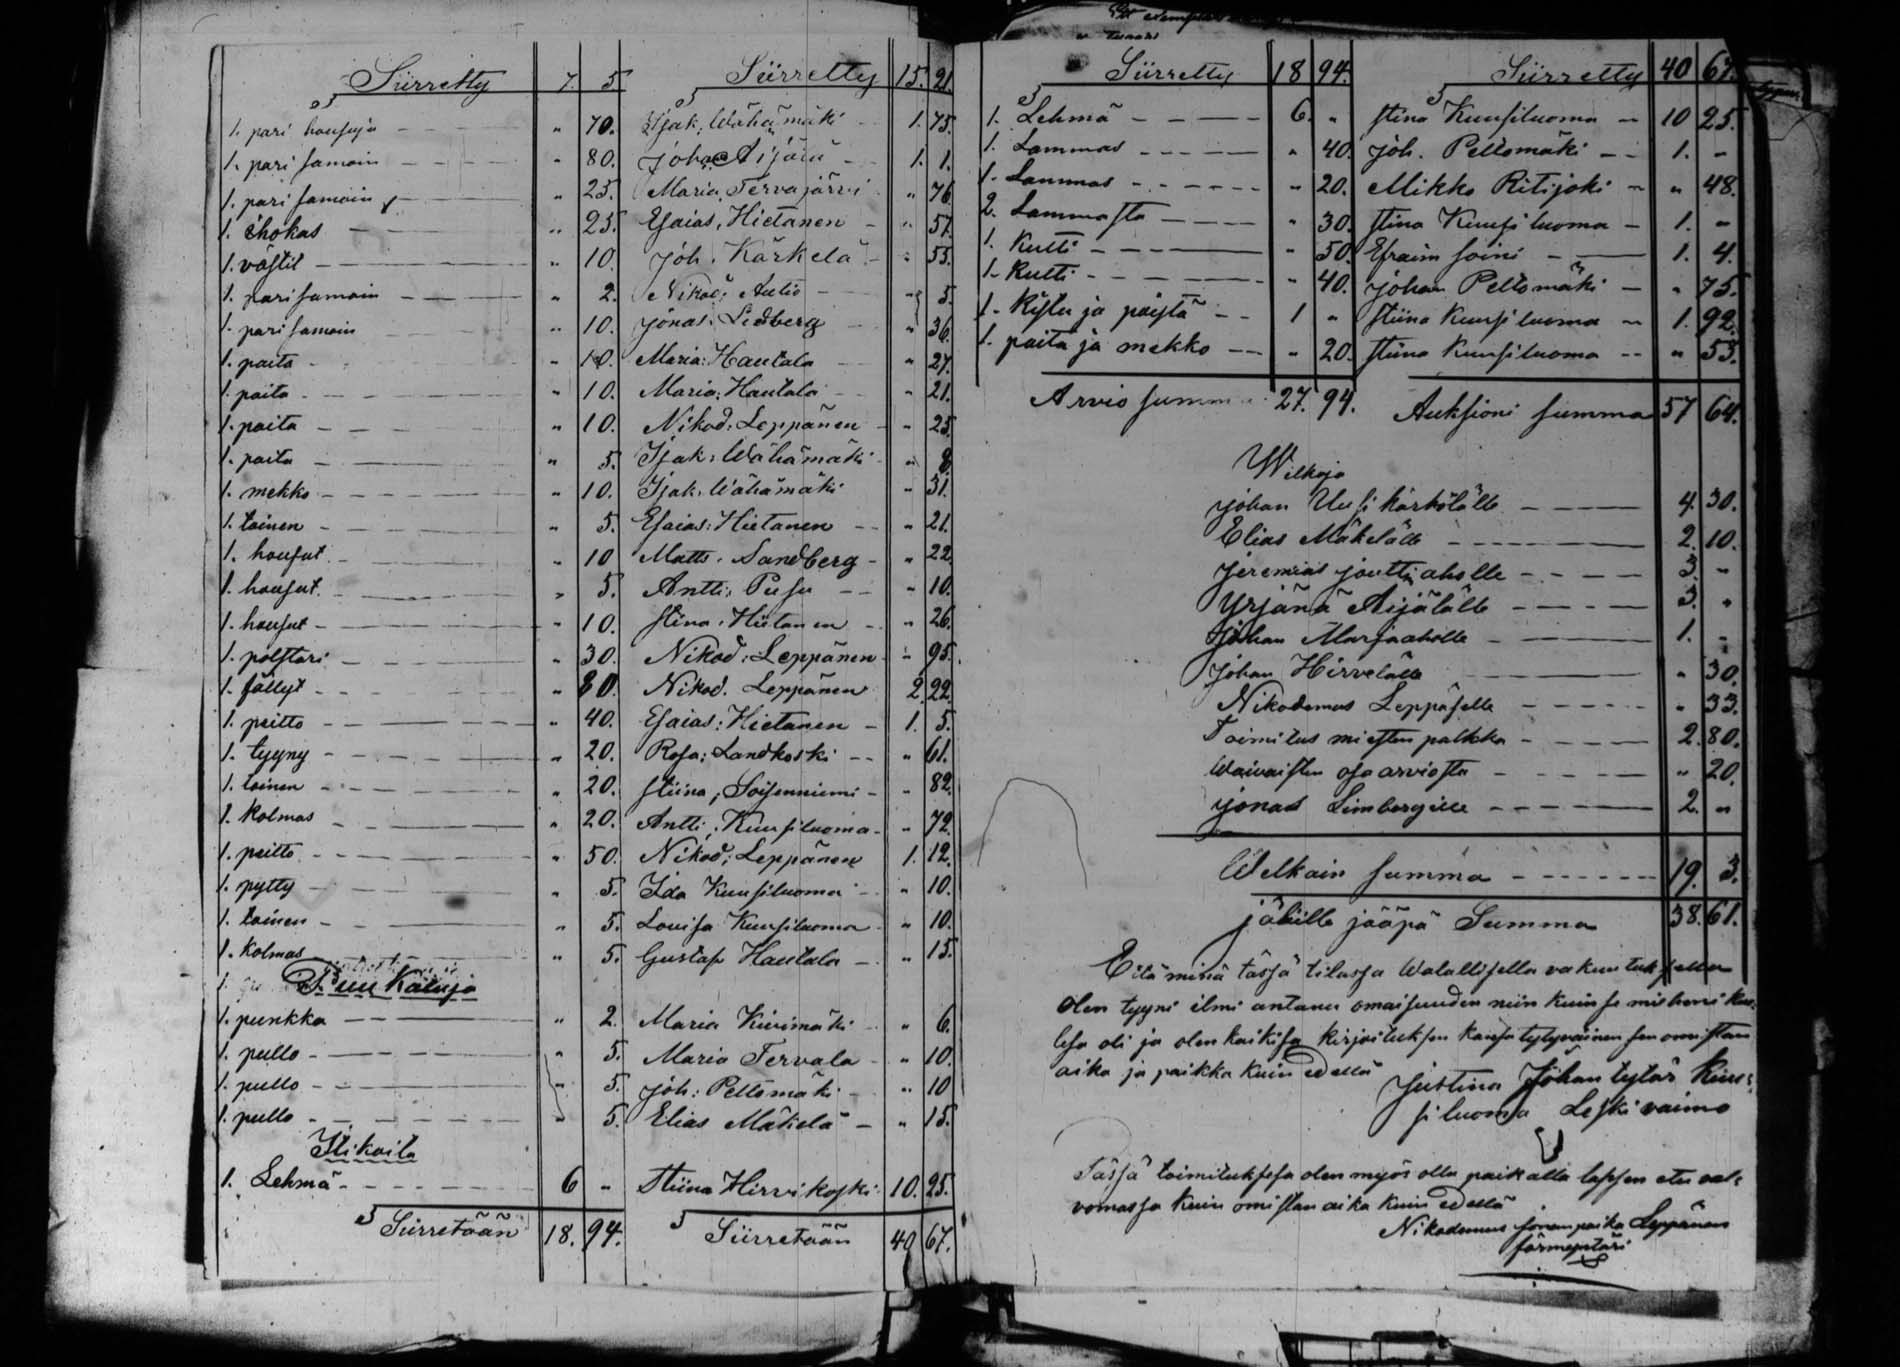 Siirretty 7. 5. Siirretty 15. 21.
1. pari housuja " 70. Isak. Wähämäki 1. 75.
1. pari samoin " 80. Johan Äijälä 1. 1.
1. pari samoin " 25. Maria Tervajärvi " 76.
1. " 25. Esaias. Hietanen " 57.
1. västil " 10. Joh. Kärkelä " 55.
1. pari samoin " 2. Nikod; Autio " 5.
1. pari samoin " 10. Jonas. Lidberg " 36.
1. paita " 10. Maria: Hautala " 27.
1. paita " 10. Maria: Hautala " 21.
1. paita " 10. Nikod: Leppänen " 25.
1. paita " 5. Isak: Wähämäki " 8.
1. mekko " 10. Isak. Wähämäki " 31.
1. toinen " 5. Esaias: Hietanen " 21.
1. housut " 10 Matts. Sandberg " 22.
1. housut " 5. Antti: Pusu " 10.
1. housut " 10. Stina. Hietanen " 26.
1. polstari " 30. Nikod: Leppänen " 95.
1. fällyt " 80. Nikod. Leppänen 2. 22.
1. peitto " 40. Esaias: Hietanen 1. 5.
1. tyyny " 20. Rosa: Landkoski " 61.
1. toinen " 20. Stiina; Soisenniemi " 82.
1. kolmas " 20. Antti; Kuusiluoma " 72.
1. peitto " 50. Nikod; Leppänen 1. 12.
1. pytty " 5. Ida Kuusiluoma " 10.
1. toinen " 5. Lovisa Kuusiluoma " 10.
1. kolmas " 5. Gustaf Hautala " 15.
Puu Kaluja
1. punkka " 2. Maria Kiwimäki " 6.
1. pullo " 5. Maria Tervala " 10.
1. pullo " 5. Joh: Peltomäki " 10
1. pullo " 5. Elias Mäkelä " 15.
Itikoita
1. Lehmä 6 " Stiina Hirvikoski 10. 25.
Siirretään 18. 94. Siirretään 40 67.
Siirretty 18 94. Siirretty 40 67.
1. Lehmä 6. " Stina Kuusiluoma 10 25.
1. Lammas " 40. Joh. Peltomäki 1. "
1. Lammas " 20. Mikko Ritijoki " 48.
2. Lammasta " 30. Stina Kuusiluoma 1. "
1. Kutti " 50. Efraim Soini 1. 4.
1. Kutti " 40. Johan Peltomäki " 75.
1. 1 " Stiina Kuusiluoma 1. 92.
1. paita ja mekko " 20. Stiina Kuusiluoma " 53.
Arvio summa 27. 94. Auksioni summa 57 64.
Welkoja
Johan Uusi Kärkölälle 4. 30.
Elias Mäkelälle 2. 10.
Jeremias Jouttiaholle 3. "
Yrjänä Äijälälle 3. "
Johan Marjaaholle 1. "
Johan Hirvelälle " 30.
Nikodemus Leppäselle " 33.
Toimitus miesten palkka 2. 80.
Waivaisten osa arviosta " 20.
Jonas Limbergille 2. "
Welkain summa 19. 3.
jälille jääpä Summa 38. 61.
Että minä tässä tilassa Walallisella vakuutuksella
olen tyyni ilmi antanu omaisuuden niin kuin se mieheni kuo-
lesa oli ja olen kaikisa kirjoituksen kansa tytyväinen sen omistan
aika ja paikka kuin edellä
Justina Johan tytär Kuu-
siluoma Leskivaimo
Tässä toimituksesa olen myös ollu paikalla lapsen etu val-
vomassa kuin omistan aika kuin edellä
Nikodemus Jonan poika Leppänen
förmyntäri